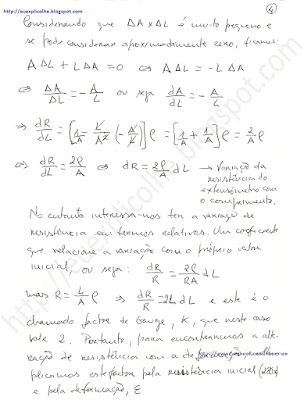 http://euexplicolhe.blogspot.com
4
Considerando que ΔA x ΔL é muito pequeno e
se pode considerar aproximadamente zero, ficamos:
A ΔL + L ΔA = 0 ⇔ A ΔL = - L ΔA
⇔ ΔA/ΔL = - A/L ou seja dA/dL = - A/L
⇒ dR/dL = [1/A - L/A² (-A/L)] ρ = [1/A + 1/A] ρ = 2/A ρ
⇔ dR/dL = 2ρ/A ⇔ dR = 2ρ/A dL → Variação da
resistência do
extensómetro com
o comprimento.
No entanto interessa-nos ter a variação de
resistência em termos relativos. Um coeficiente
que relacione a variação com o próprio valor
inicial, ou seja: dR/R = 2ρ/RA dL
mas R = L/A ρ ⇒ dR/R = 2 dL e este é o
chamado factor de Gauge, K, que neste caso
vale 2. Portanto, para encontrarmos a alte-
ração de resistência com a
plicamos este factor pela resistência inicial
e pela deformação, ε